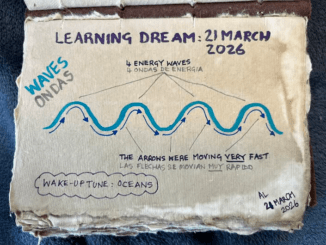 LEARNING DREAM: 21 MARCH
2026
WAVES
ONDAS
4 ENERGY WAVES
4 ONDAS DE ENERGÍA
THE ARROWS WERE MOVING VERY FAST
LAS FLECHAS SE MOVÍAN MUY RÁPIDO
WAKE-UP TUNE: OCEANS
AL
21 MARCH
2026